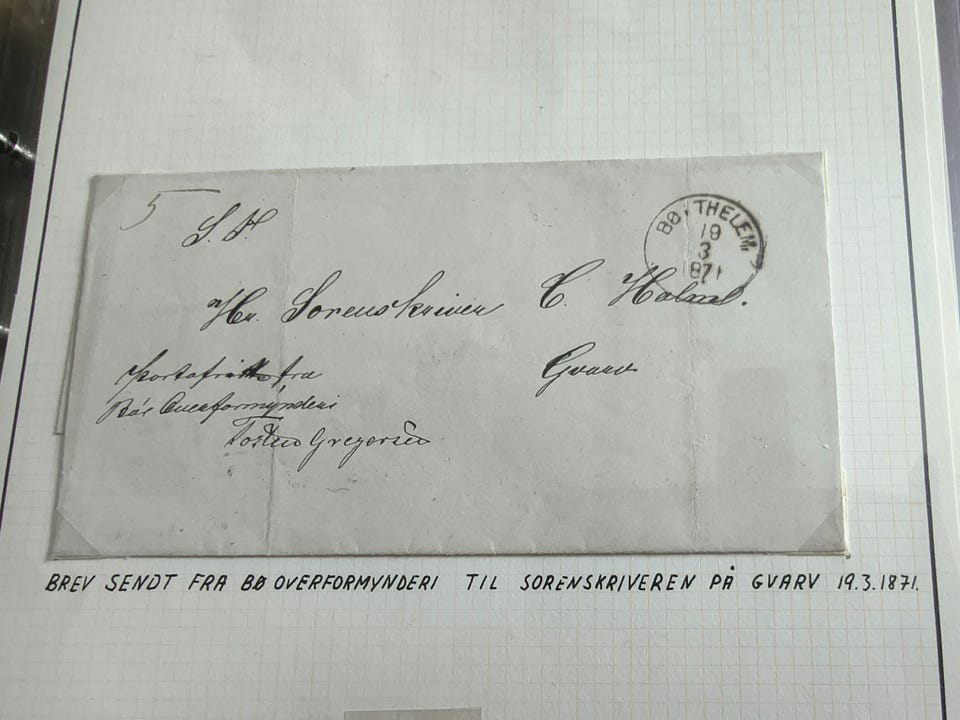 5
S. H.
BØ, THELEM:
19
3
1871
Hr. Sorenskriver C. Holm.
Portofritt fra
Gvarv
Bøs Overformynderi
Torsten Gregersen
BREV SENDT FRA BØ OVERFORMYNDERI TIL SORENSKRIVEREN PÅ GVARV 19.3.1871.